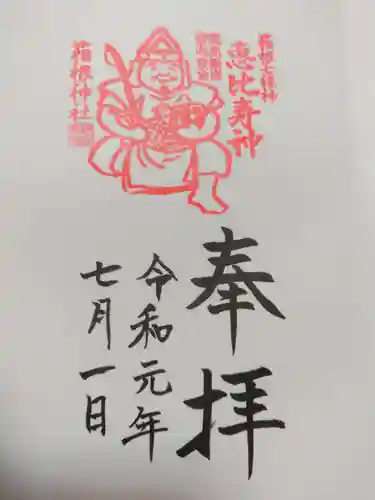 箱根七福神
恵比寿神
箱根神社
奉拝
令和元年
七月一日